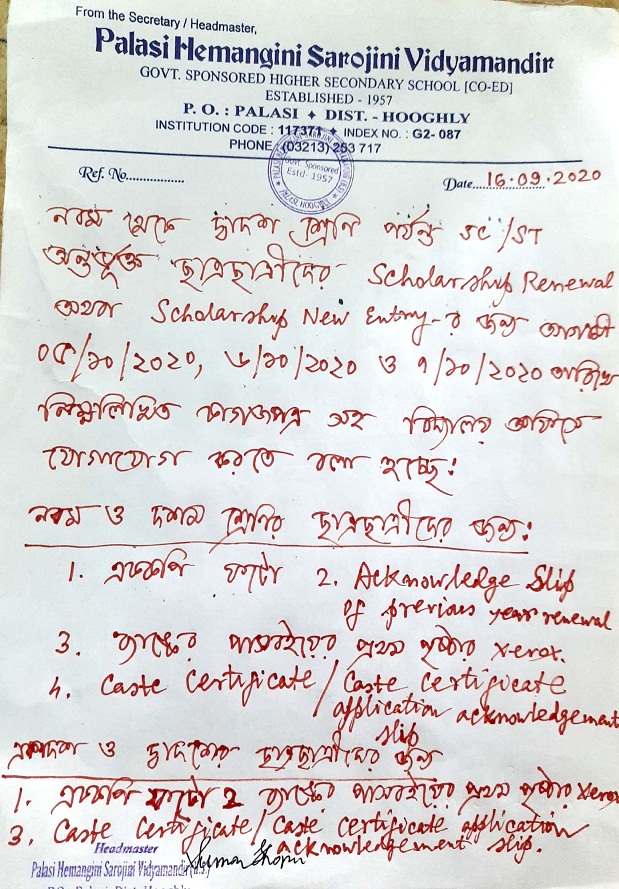 From the Secretary / Headmaster,
Palasi Hemangini Sarojini Vidyamandir
GOVT. SPONSORED HIGHER SECONDARY SCHOOL [CO-ED]
ESTABLISHED - 1957
P. O. : PALASI ✦ DIST. - HOOGHLY
INSTITUTION CODE : 117371 ✦ INDEX NO. : G2- 087
PHONE (03213) 253 717
Govt. Sponsored
Estd- 1957
PALASI, HOOGHLY
Ref. No................
Date....16.09.2020
নবম থেকে দ্বাদশ শ্রেণি পর্যন্ত SC/ST
অন্তর্ভুক্ত ছাত্রছাত্রীদের Scholarship Renewal
অথবা Scholarship New Entry-র জন্য আগামী
০৫/১০/২০২০, ৬/১০/২০২০ ও ৭/১০/২০২০ তারিখে
নিম্নলিখিত কাগজপত্র সহ বিদ্যালয় অফিসে
যোগাযোগ করতে বলা হচ্ছে:
নবম ও দশম শ্রেণির ছাত্রছাত্রীদের জন্য:
1. এককপি ফটো 2. Acknowledge Slip
of previous year renewal
3. ব্যাঙ্কের পাসবইয়ের প্রথম পৃষ্ঠার xerox.
4. Caste Certificate / Caste Certificate
application acknowledgement
slip
একাদশ ও দ্বাদশের ছাত্রছাত্রীদের জন্য
1. এককপি ফটো 2 ব্যাঙ্কের পাসবইয়ের প্রথম পৃষ্ঠার xerox
3. Caste Certificate / Caste Certificate application
acknowledgement slip.
Headmaster
Palasi Hemangini Sarojini Vidyamandir (H.S.)